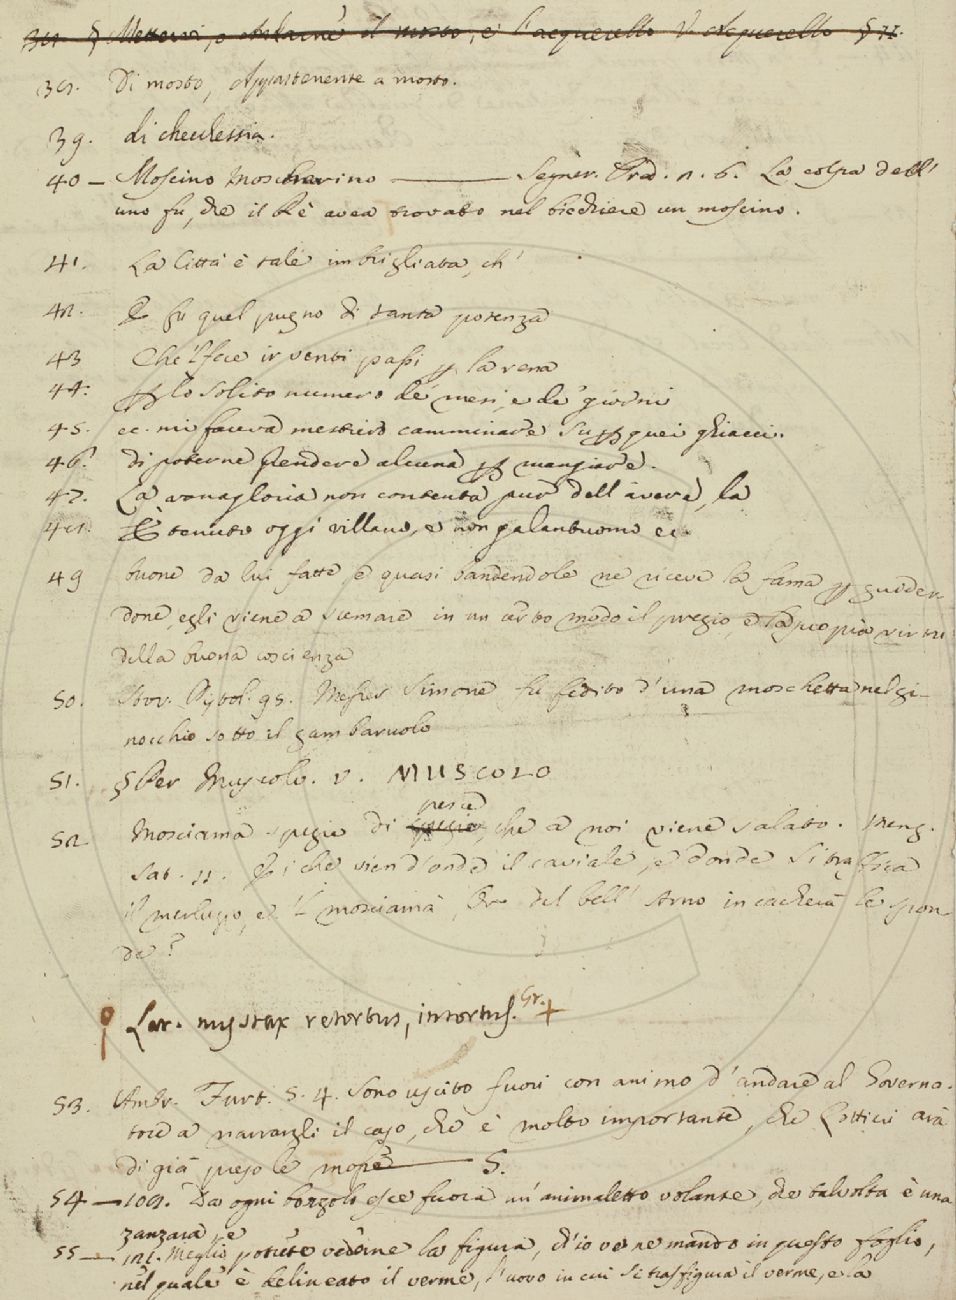 38. § Mettersi, o chetarne il mosto, e l'acquerello V. Acquerello § II.
38. Di mosto, Appartenente a mosto.
39. di checchessia.
40 – Moscino Moscherino —— Segner. Pred. n. 6. La colpa dell'
uno fu, che il Re avea trovato nel bicchiere un moscino.
41. La Città è tale imbrigliata, ch'
42. E fu quel pugno di tanta potenza
43 Che 'l fece ir venti passi p la rena
44. p lo solito numero de' mesi, e de' giorni
45. ec. mi faceva mestiero camminare su p quei ghiacci.
46. di poterne prendere alcuna p mangiare.
47. La vanagloria non contenta pur dell'avere, la
48. È tenuto oggi villano, e non galantuomo ec.
49 buone da lui fatte e quasi vendendole ne riceve la fama p guider-
done, egli viene a scemare in un certo modo il pregio, e la propia virtù
della buona coscienza
50. Stor. Pistol. 95. Messer Simone fu fedito d'una moschetta nel gi-
nocchio sotto il gambaruolo
51. § Per Muscolo. v. MUSCOLO
52 Mosciama spezie di pesce, che a noi viene salato. Meng.
Sat. 11. E i che vien d'onde il caviale, e donde si traffica
il merluzzo, e 'l mosciamà, del bell'Arno incacherà le spon
de?
Lat. mystax retortus, intortus. Gr. +
53. Ambr. Furt. 5. 4. Sono uscito fuori con animo d'andare al Governa-
tore a narrargli il caso, che è molto importante, che Cottieri arà
di già preso le mosse —— S.
54 — 108. Da ogni bozzolo esce fuora un'animaletto volante, che talvolta è una
zanzara, e
55 — Meglio potrete vederne la figura, ch'io ve ne mando in questo foglio,
nel quale è delineato il verme, l'uovo in cui si trasfigura il verme, e la